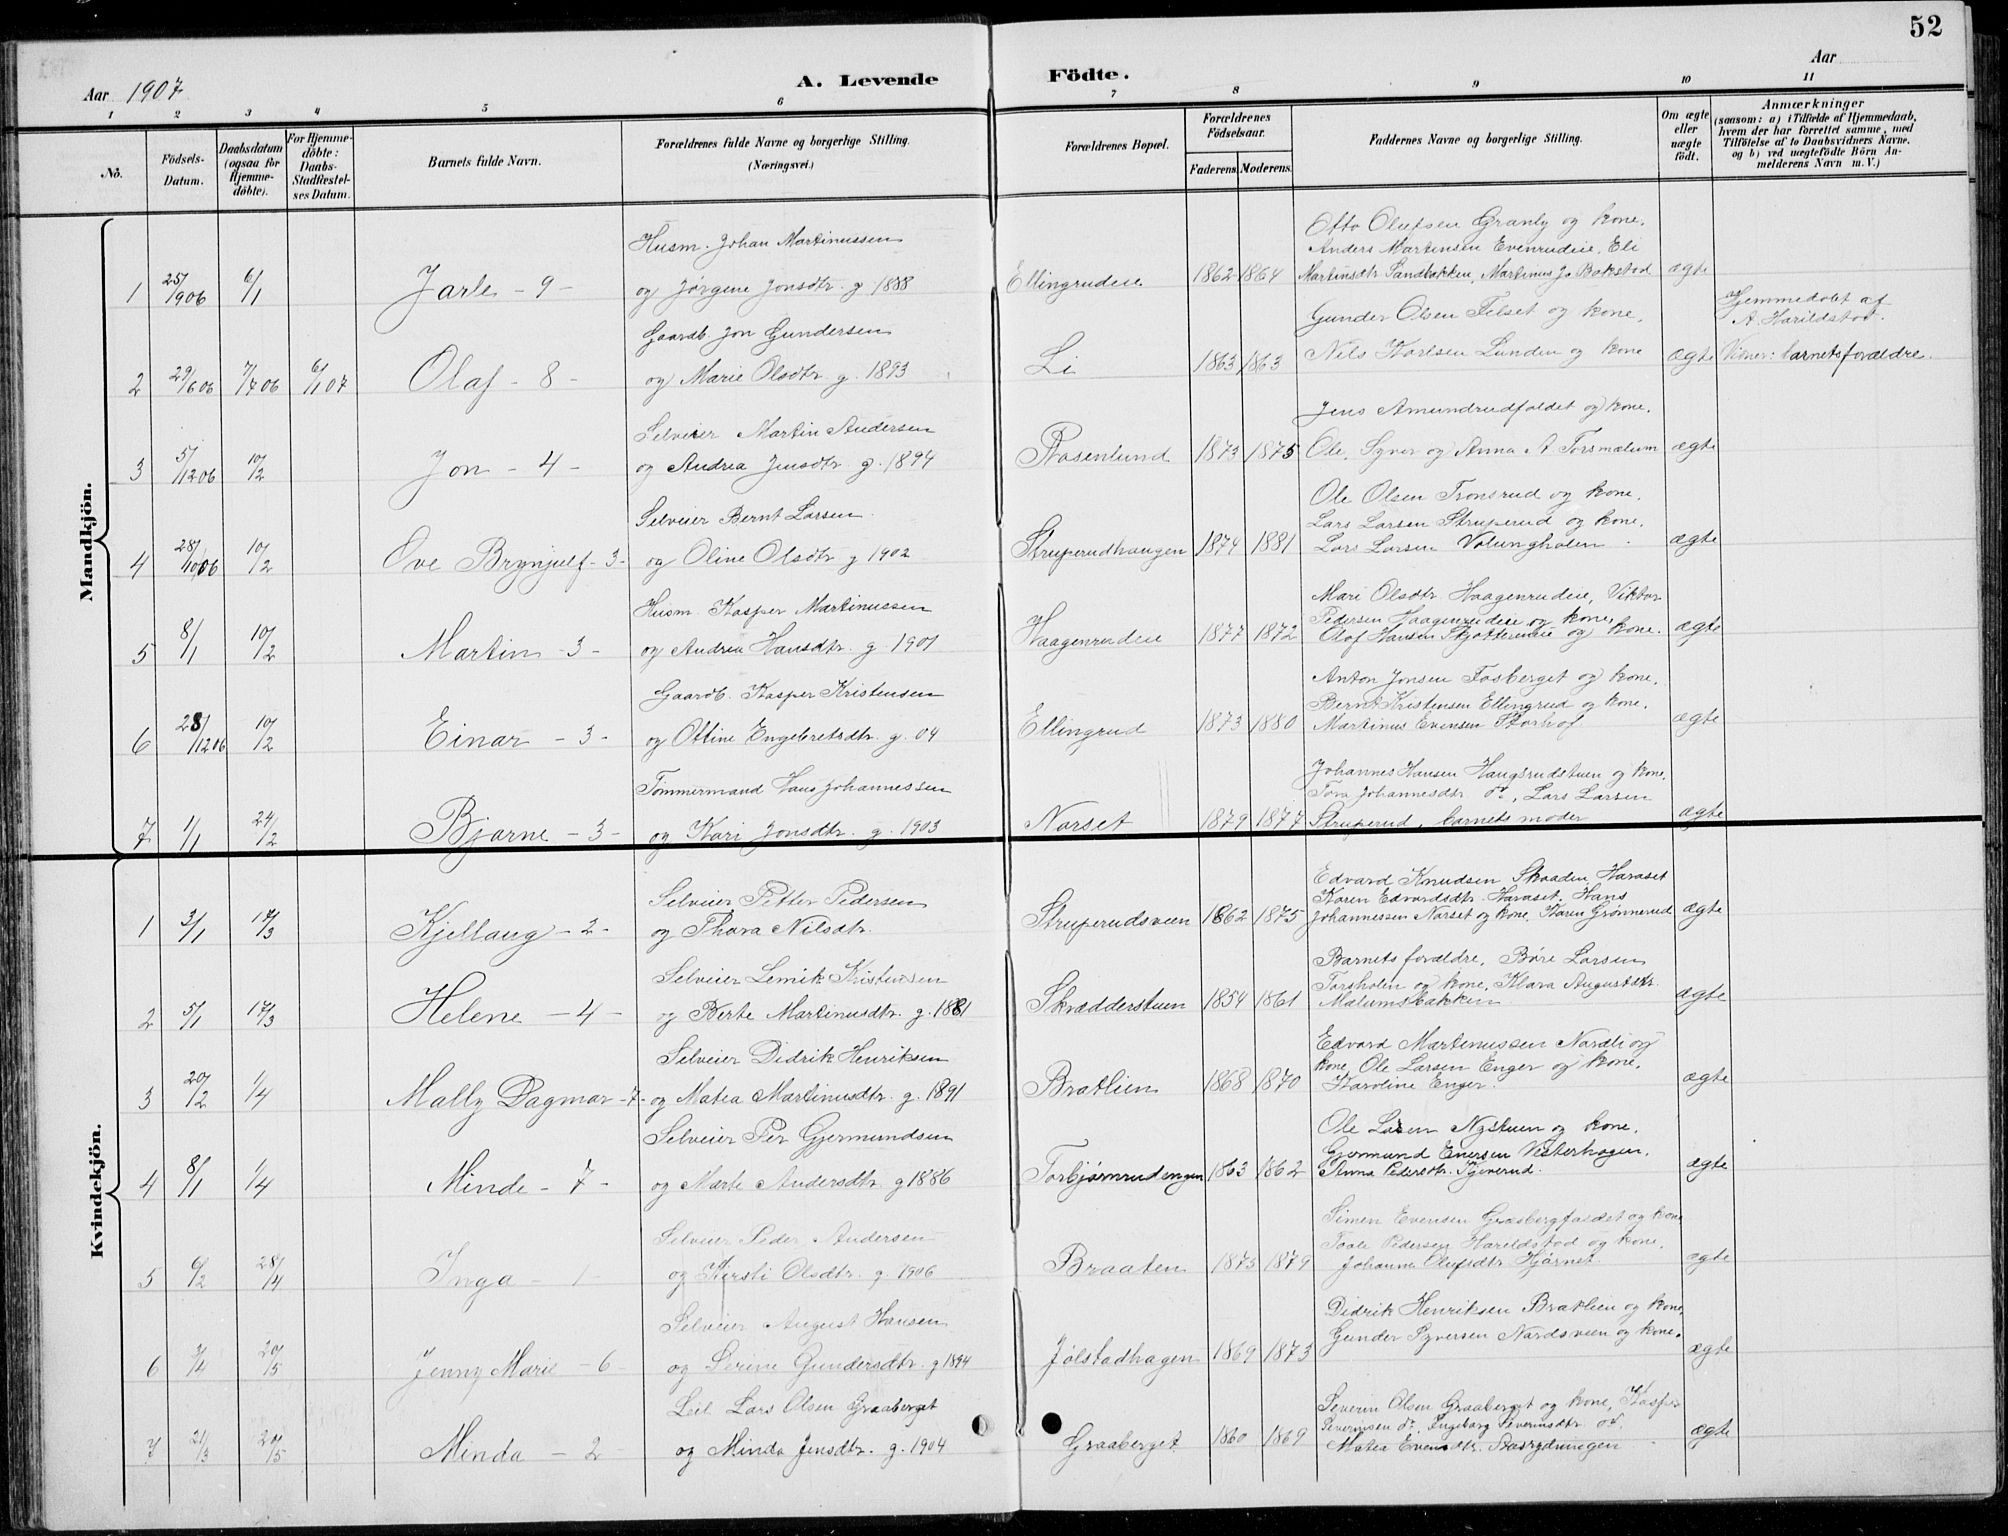 52
Aar 1907
A. Levende Födte.
Aar
1 2 3 4 5 6 7 8 9 10 11
No.
Födsels-Datum.
Daabsdatum (ogsaa for Hjemme-döbte).
For Hjemme-döbte: Daabs-Stadfæstel-ses Datum.
Barnets fulde Navn.
Forældrenes fulde Navne og borgerlige Stilling. (Næringsvei.)
Forældrenes Bopæl.
Forældrenes Födselsaar.
Faderens. Moderens.
Faddernes Navne og borgerlige Stilling.
Om ægte eller uægte födt.
Anmærkninger (saasom: a) i Tilfælde af Hjemmedaab, hvem der har forrettet samme, med Tilföielse af to Daabsvidners Navne, og b) ved uægtefödte Börn Anmelderens Navn m. V.)
Mandkjön.
1 25/1906 6/1 Jarle - 9 -
Husm. Johan Martinussen
og Jørgine Jonsdtr. g. 1888
Ellingrudeie 1862 1864
Otto Olufsen Granly og kone.
Anders Martinsen Evenrudeie, Eli
Martinsdtr Sandbakken, Martinus Jo Bakstad
ægte
2 29/6 06 7/7 06 6/1 07 Olaf - 8 -
Gaardb. Jon Gundersen
og Marie Olsdtr. g. 1893
Li 1863 1863
Gunder Olsen Felset og kone,
Nils Karlsen Lunden og kone
ægte
Hjemmedøbt af
A. Harildstad.
Vidner: barnets forældre.
3 5/12 06 10/2 Jon - 4 -
Selveier Martin Andersen
og Andrea Jensdtr. g. 1894
Rosenlund 1873 1875
Jens Amundrudfaldet og kone.
Ole, Syver og Anna A Torsmælum
ægte
4 28/10 06 10/2 Ove Brynjulf - 3 -
Selveier Bernt Larsen
og Oline Olsdtr g 1902
Struperudhaugen 1874 1881
Ole Olsen Tronsrud og kone.
Lars Larsen Struperud og kone.
Lars Larsen Volungholen
ægte
5 8/1 10/2 Martin - 3 -
Husm. Kasper Martinussen
og Andrea Hansdtr. g. 1901
Haagenrudeie 1877 1872
Mari Olsdtr Haagenrudeie, Viktor
Pedersen Haagenrudeie og kone
Olaf Hansen og kone.
ægte
6 28/12 06 10/2 Einar - 3 -
Gaardb. Kasper Kristensen
og Ottine Engebretsdtr. g. 04
Ellingrud 1873 1880
Anton Jonsen Fosberget og kone.
Bernt Kristensen Ellingrud og kone.
Martinus Evensen Storhof
ægte
7 1/1 24/2 Bjarne - 3 -
Tømmermand Hans Johannessen
og Kari Jonsdtr. g. 1903
Narset 1879 1877
Johannes Hansen Haugsrudstuen og kone.
Tora Johannesdtr do, Lars Larsen
Struperud, barnets moder
ægte
Kvindekjön.
1 3/1 17/3 Kjellaug - 2 -
Selveier Petter Pedersen
og Thora Nilsdtr.
Struperudsveen 1862 1875
Edvard Knudsen Skaaden, Haraset
Karen Edvardsdtr. Haraset. Hans
Johannessen Narset og kone, Karen Grønnerud
ægte
2 5/1 17/3 Helene - 4 -
Selveier Lemik Kristensen
og Berte Martinusdtr. g. 1881
Skrædderstuen 1854 1861
Barnets forældre, Børe Larsen
Torsholen og kone, Klara Augustdtr.
Mælumsbakken
ægte
3 20/2 1/4 Mally Dagmar - 7 -
Selveier Didrik Henriksen
og Matea Martinusdtr. g. 1891
Bratlien 1868 1870
Edvard Martinussen Nordli og
kone, Ole Larsen Enger og kone,
Karoline Enger.
ægte
4 8/1 1/4 Minde - 7 -
Selveier Per Gjermundsen
og Marte Andersdtr. g 1886
Torbjørnrudengen 1863 1862
Ole Larsen Nystuen og kone.
Gjermund Enersen Vesterhagen,
Anna Pedersdtr.
ægte
5 6/2 28/4 Inga - 1
Selveier Peder Andersen
og Kersti Olsdtr. g. 1906
Braaten 1875 1879
Simen Evensen Græsbergfaldet og kone
Paale Pedersen Hareldstad og kone,
Johanne Olufsdtr Hjørnet.
ægte
6 7/4 20/5 Jenny Marie - 6 -
Selveier August Hansen
og Serine Gundersdtr. g 1894
Jølstadhagen 1869 1873
Didrik Henriksen Bratlien og kone,
Gunder Syversen Nordsveen og kone.
ægte
7 21/3 20/5 Minda - 2
Leil. Lars Olsen Graaberget
og Minda Jensdtr. g. 1904
Graaberget 1860 1869
Severin Olsen Graaberget og kone, Kasper
Severinsen do. Ingeborg Severinsdtr. do.
Matea Evensdtr.
ægte